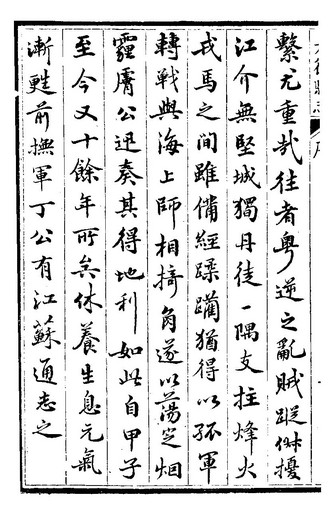 繫尤重哉往者粤逆之亂賊蹤倂擾
江介無堅城獨丹徒一隅支拄烽火
戎馬之間雖備經蹂躪猶得以孤軍
轉戰與海上師相掎角遂以蕩定烟
霾膚公迅奏其得地利如此自甲子
至今又十餘年所矣休養生息元氣
漸甦前撫軍丁公有江蘇通志之